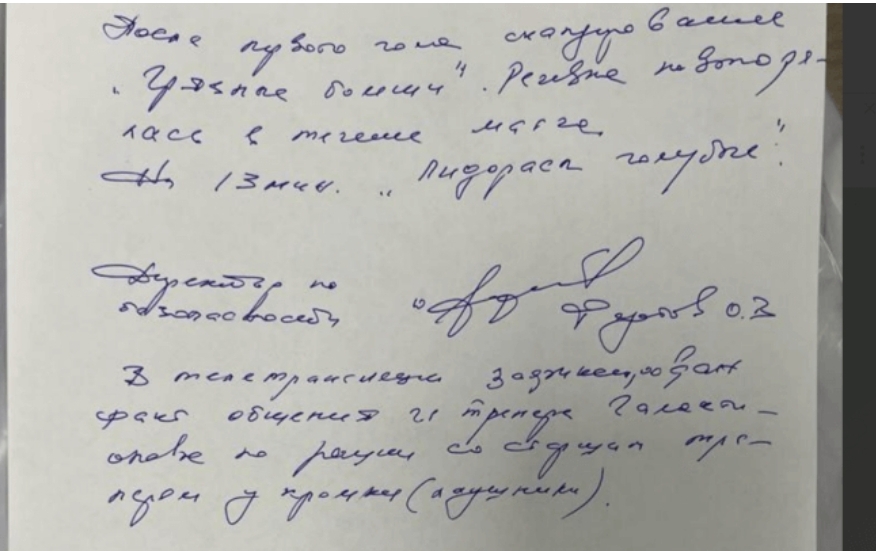 После первого гола скандирование
"Грязные бомжи". Речевка повторя-
лась в течение матча.
На 13 мин. "Пидорасы голубые".
Директор по
безопасности
О.З
В телетрансляции зафиксирован
факт общения гл тренера Галакти-
онова по рации со старшим тре-
нером у кромки (наушники).